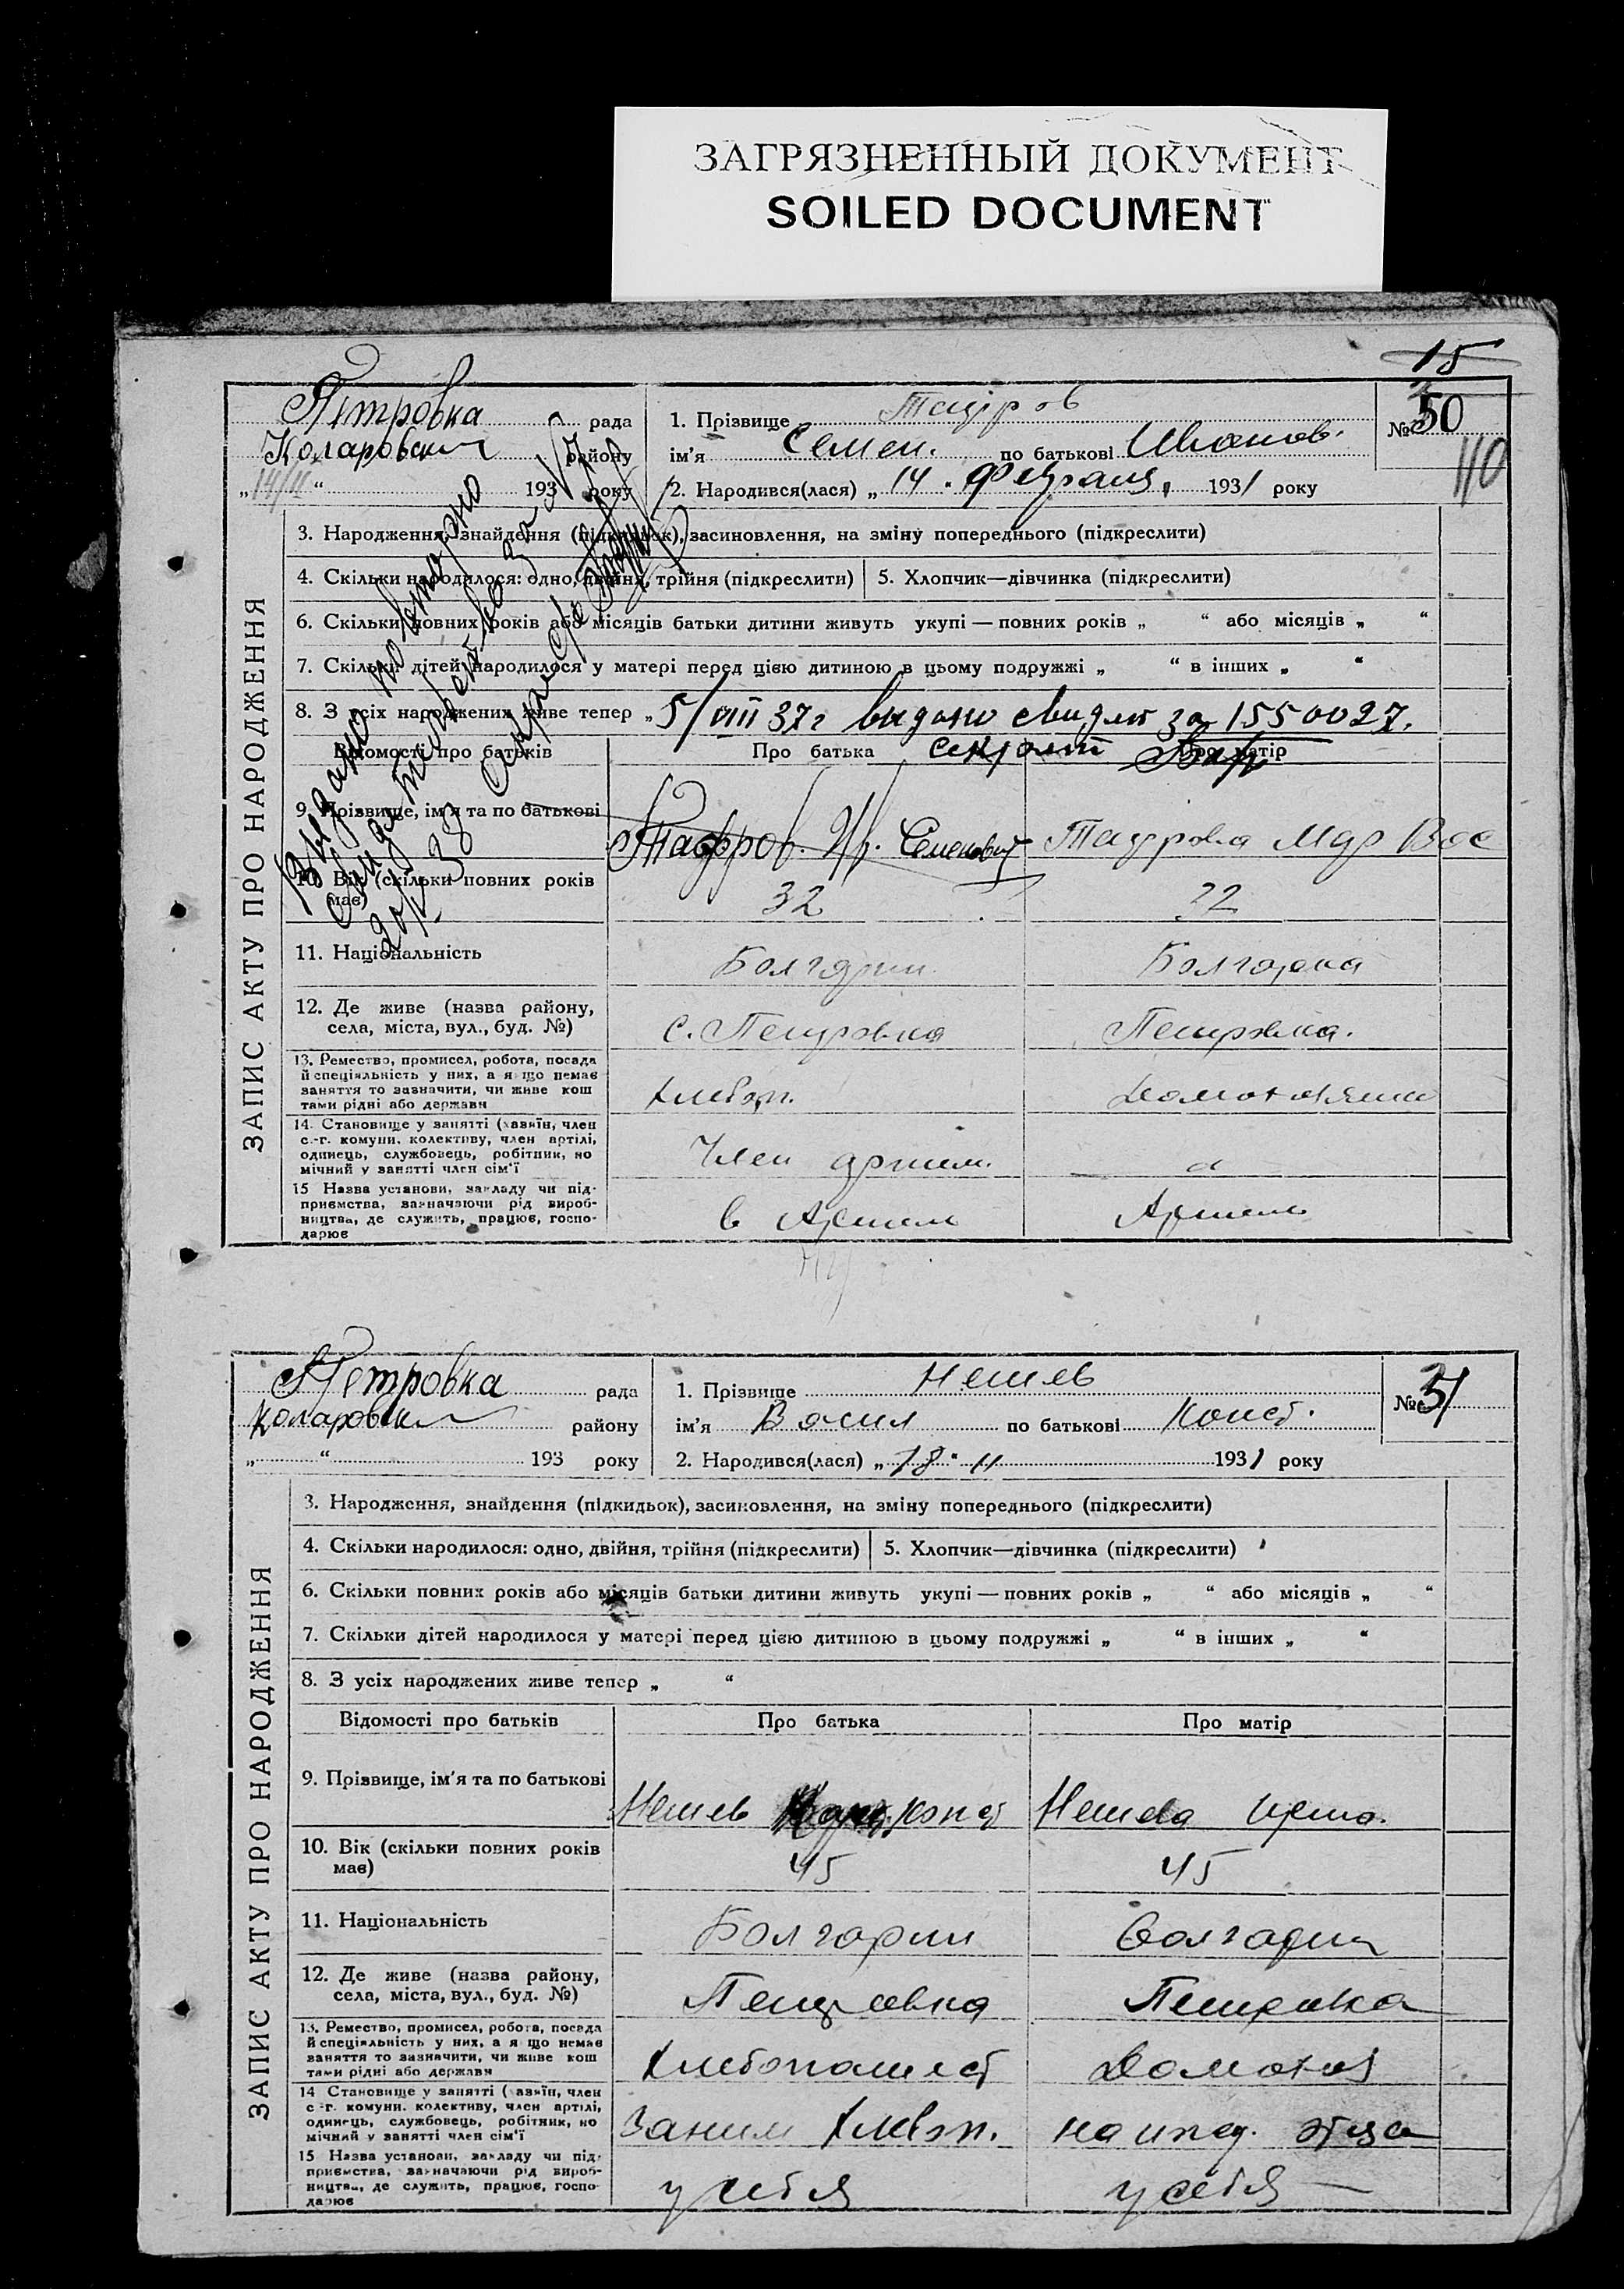 ЗАГРЯЗНЕННЫЙ ДОКУМЕНТ
SOILED DOCUMENT
15
Петровка рада
Коларовск району
„14/II“ 193 року
1. Прізвище Тащров
ім'я Семен. по батькові Иванов.
2. Народився(лася) „14. Февраля, 1931 року
№ 50
110
ЗАПИС АКТУ ПРО НАРОДЖЕННЯ
3. Народження, знайдення (підкидьок), засиновлення, на зміну попереднього (підкреслити)
4. Скільки народилося: одно, двійня, трійня (підкреслити) 5. Хлопчик—дівчинка (підкреслити)
6. Скільки повних років або місяців батьки дитини живуть укупі — повних років „ “ або місяців „ “
7. Скільки дітей народилося у матері перед цією дитиною в цьому подружжі „ “ в інших „ “
8. З усіх народжених живе тепер „ 5/VIII 37 г выдано свидет за 1550027.
Выдано повторно
Відомості про батьків Про батька Про матір
9. Прізвище, ім'я та по батькові Ив. Семенович Мар Вас
10. Вік (скільки повних років має) 32 22
11. Національність Болгарин. Болгарка
12. Де живе (назва району, села, міста, вул., буд. №) с. Петровка Петровка.
13. Ремество, промисел, робота, посада й спеціяльність у них, а якщо немає заняття то зазначити, чи живе коштами рідні або держави Хлебоп. Домохозяйка
14. Становище у занятті (хазяїн, член с.-г. комуни, колективу, член артілі, одинець, службовець, робітник, помічний у занятті член сім'ї Член артели.
15 Назва установи, закладу чи підприємства, зазначаючи рід виробництва, де служить, працює, господарює в Артели Артель
Петровка рада
Коларовск району
„ “ 193 року
1. Прізвище Нешев
ім'я Васил по батькові Конст.
2. Народився(лася) „18. II 1931 року
№ 51
ЗАПИС АКТУ ПРО НАРОДЖЕННЯ
3. Народження, знайдення (підкидьок), засиновлення, на зміну попереднього (підкреслити)
4. Скільки народилося: одно, двійня, трійня (підкреслити) 5. Хлопчик—дівчинка (підкреслити)
6. Скільки повних років або місяців батьки дитини живуть укупі — повних років „ “ або місяців „ “
7. Скільки дітей народилося у матері перед цією дитиною в цьому подружжі „ “ в інших „ “
8. З усіх народжених живе тепер „ “
Відомості про батьків Про батька Про матір
9. Прізвище, ім'я та по батькові Нешев Конст Нешева
10. Вік (скільки повних років має) 45 45
11. Національність Болгарин Болгарин
12. Де живе (назва району, села, міста, вул., буд. №) Петровка Петровка
13. Ремество, промисел, робота, посада й спеціяльність у них, а якщо немає заняття то зазначити, чи живе коштами рідні або держави Хлебопашест Домохоз
14 Становище у занятті (хазяїн, член с.-г. комуни, колективу, член артілі, одинець, службовець, робітник, помічний у занятті член сім'ї Заним Хлебоп. на ижд. отца
15 Назва установи, закладу чи підприємства, зазначаючи рід виробництва, де служить, працює, господарює у себя у себя